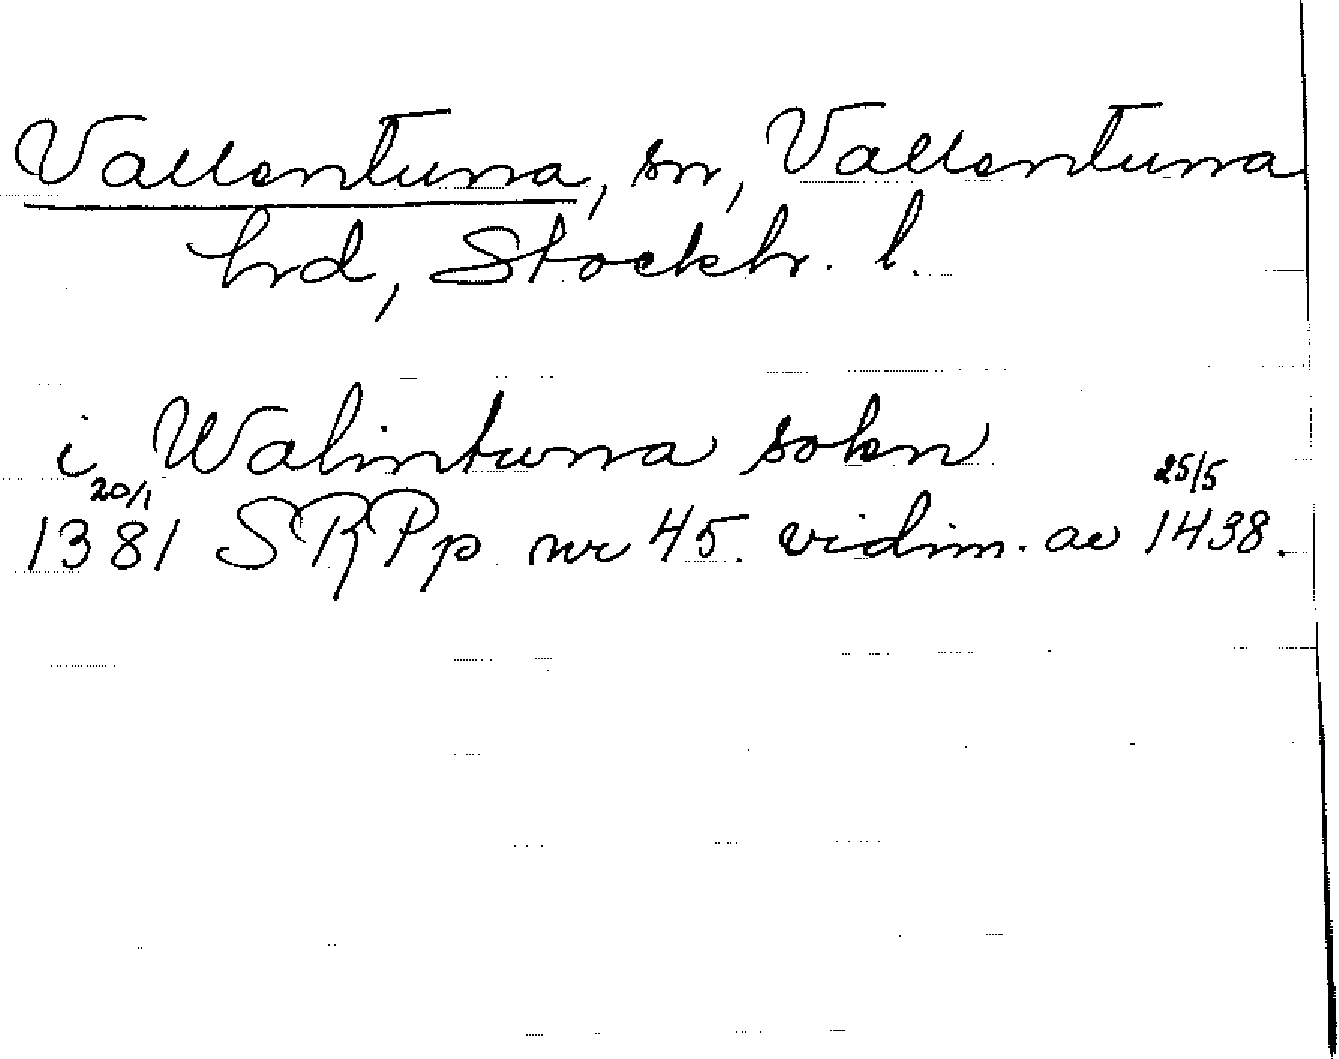 Vallentuna, sn, Vallentuna
hrd, Stockh. l.
i Walintuna sokn
20/1 25/5
1381 SRPp nr 45. vidim. av 1438.